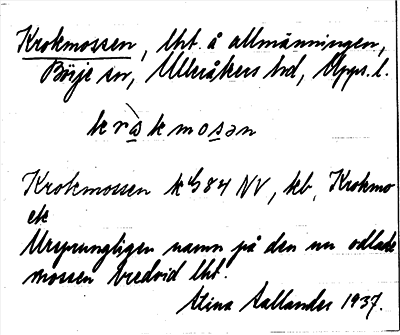 Krokmossen, lht. å allmänningen,
Börje sn, Ulleråkers hd, Upps. l.
kråkmosən
Krokmossen k 84 NV, kb, Krokmo
ek
Ursprungligen namn på den nu odlade
mossen bredvid lht.
Stina Sallander 1937.